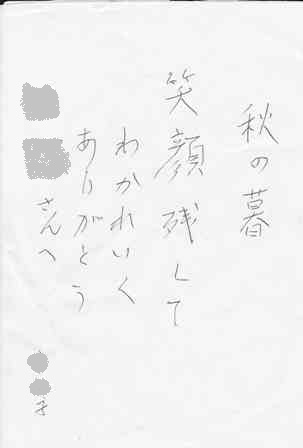 秋の暮
笑顔残して
わかれいく
ありがとう
さんへ
子